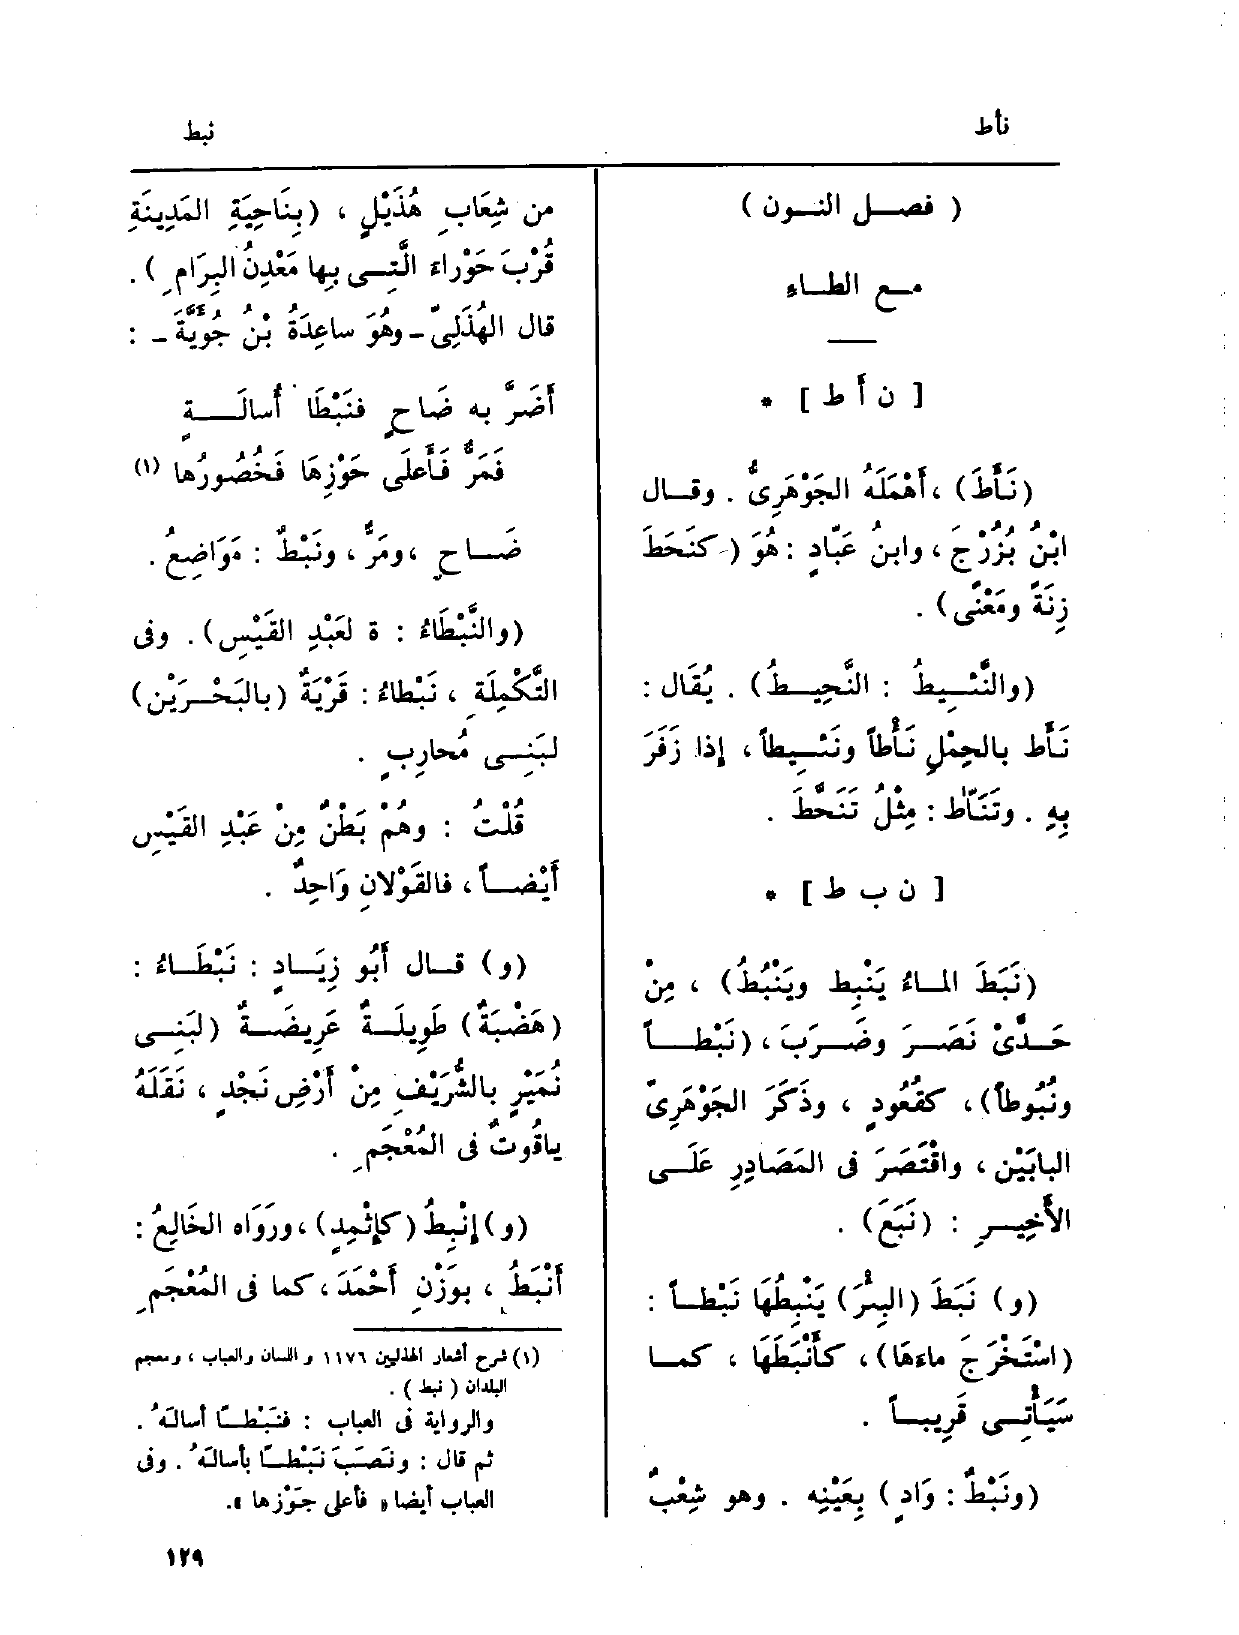 نأط
نبط
( فصـل النـون )
مـع الطـاء
[ ن أ ط ] *
(نَأَطَ) ، أَهْمَلَهُ الجَوْهَرِىُّ . وقـال
ابْنُ بُزُرْجَ ، وابنُ عَبّادٍ : هُوَ (كَنَحَطَ
زِنَةً ومَعْنًى) .
(والنَّئِـيطُ : النَّحِيـطُ) . يُقَال :
نَأَط بالحِمْلِ نَأْطاً ونَئِـيطاً ، إِذا زَفَرَ
بِهِ . وتَنَأّط : مِثْلُ تَنَحَّطَ .
[ ن ب ط ] *
(نَبَطَ المـاءُ يَنْبِط ويَنْبُطُ) ، مِنْ
حَـدَّىْ نَصَـرَ وضَـرَبَ ، (نَبْطـاً
ونُبُوطاً) ، كقُعُودٍ ، وذَكَرَ الجَوْهَرِىّ
البابَيْن ، واقْتَصَرَ فى المَصَادِرِ عَلَـى
الأَخِيـرِ : (نَبَعَ) .
(و) نَبَطَ (البِئْرَ) يَنْبِطُهَا نَبْطـاً :
(اسْتَخْرَجَ ماءَهَا) ، كأَنْبَطَهَا ، كمـا
سَيَأْتِـى قَرِيبـاً .
(ونَبْطٌ : وَادٍ) بِعَيْنِه . وهو شِعْبٌ
من شِعَابِ هُذَيْلٍ ، (بِنَاحِيَةِ المَدِينَةِ
قُرْبَ حَوْراءَ الَّتِـى بِها مَعْدِنُ البِرَامِ ) .
قال الهُذَلِىّ - وهُوَ ساعِدَةُ بْنُ جُؤَيَّةَ - :
أَضَرَّ به ضَاحٍ فنَبْطَا أُسالَـةٍ
فَمَرٌّ فَأَعلَى حَوْزِهَا فَخُصُورُها (١)
ضَـاحٍ ، ومَرٌّ ، ونَبْطٌ : مَوَاضِعُ .
(والنَّبْطَاءُ : ة لعَبْدِ القَيْسِ) . وفى
التَّكْمِلَةِ ، نَبْطاءُ : قَرْيَةٌ (بالبَحْـرَيْن)
لبَنِـى مُحارِبٍ .
قُلْتُ : وهُمْ بَطْنٌ مِنْ عَبْدِ القَيْسِ
أَيْضـاً ، فالقَوْلانِ وَاحِدٌ .
(و) قـال أَبُو زِيَـادٍ : نَبْطَـاءُ :
(هَضْبَةٌ) طَوِيلَـةٌ عَرِيضَـةٌ (لبَنِـى
نُمَيْرٍ بالشُّرَيْفِ مِنْ أَرْضِ نَجْدٍ ، نَقَلَهُ
ياقُوتٌ فى المُعْجَمِ .
(و) إِنْبِطُ (كإِثْمِدٍ) ، ورَوَاه الخَالِعُ :
أَنْبَطُ ، بوَزْنِ أَحْمَدَ ، كما فى المُعْجَمِ
(١) شرح أشعار الهذليين ١١٧٦ و اللسان والعباب ، ومعجم
البلدان ( نبط ) .
والرواية فى العباب : فنَبْطـًا أسالَةُ .
ثم قال : ونَصَبَ نَبْطـًا بأسالَةُ . وفى
العباب أيضا « فأعلى جَوْزها » .
١٢٩